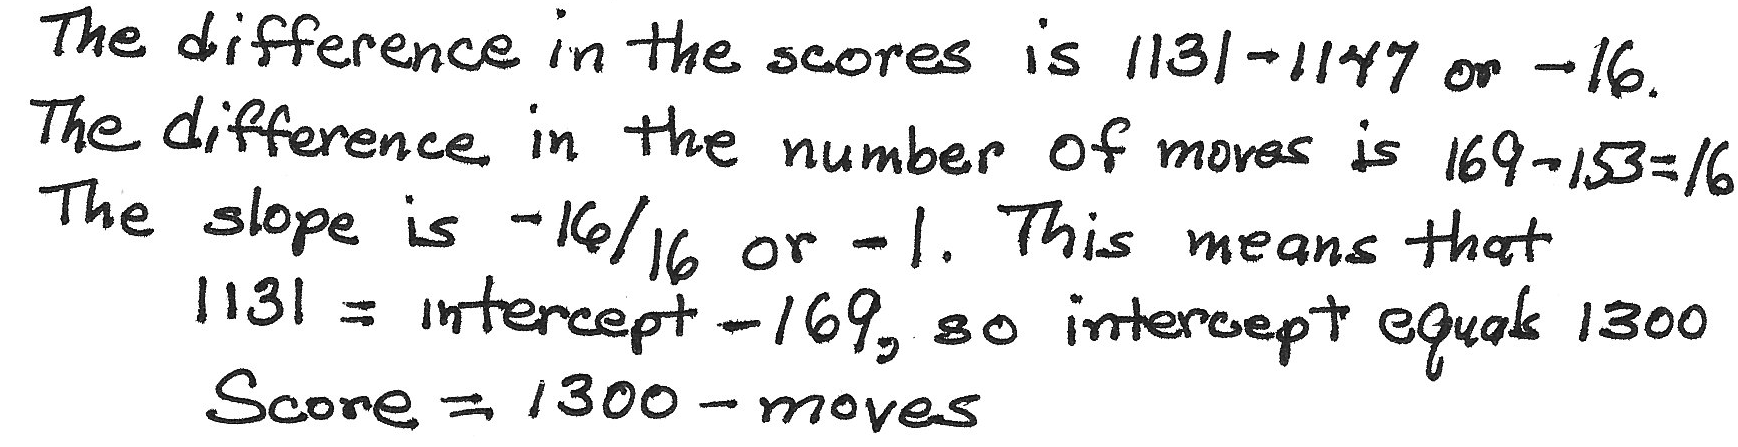 The difference in the scores is 1131-1147 or -16.
The difference in the number of moves is 169-153=16
The slope is -16/16 or -1. This means that
1131 = intercept -169, so intercept equals 1300
Score = 1300 - moves